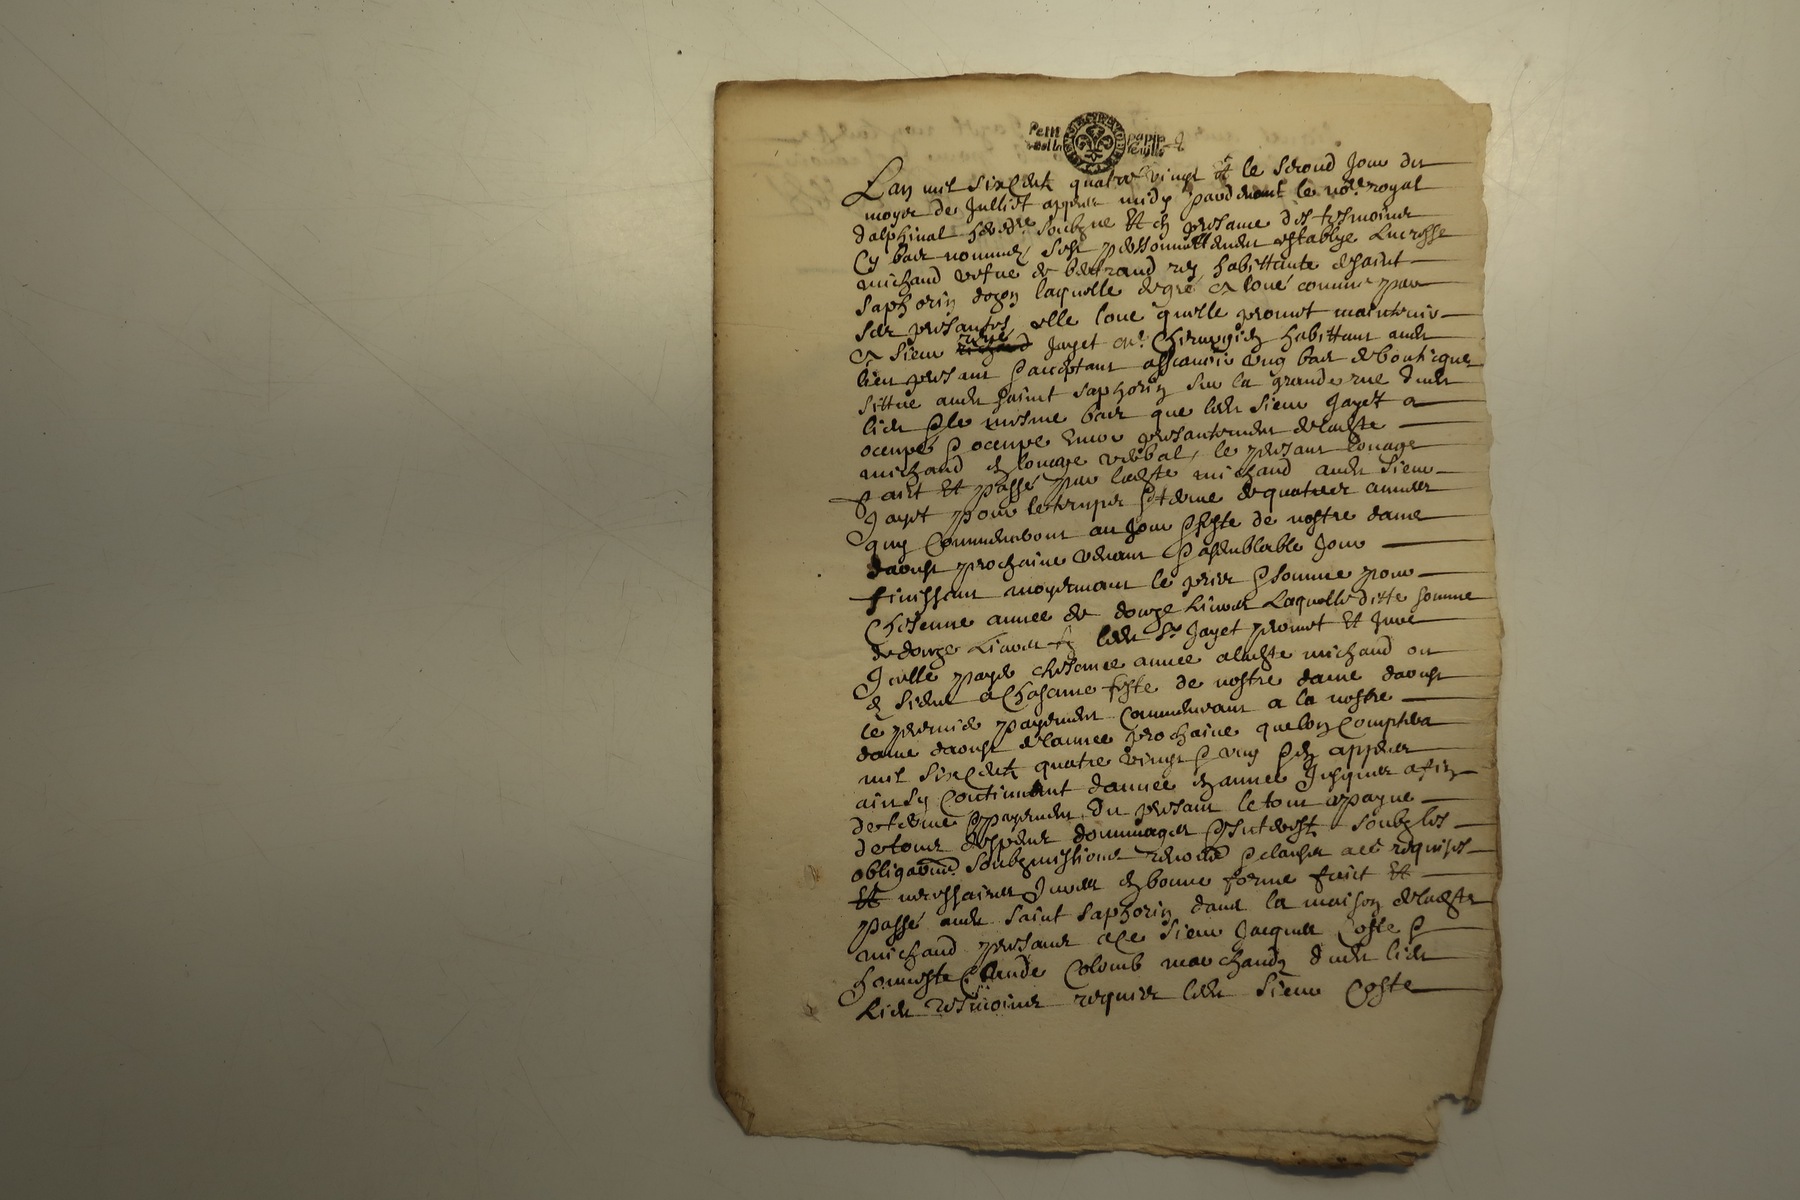 Petit papie
feuille
Lan mil six cent quatre vingt et le second Jour du
moys de Juillet appres midy pardevant le nore royal
dalphinal hered.re soubzne Et en presance des tesmoins
Cy bas nommez sest personnellement establye Lucresse
michaud vefve de bertrand rey habittante de saint
saphorin dozon laquelle de gre a loué comme par
ses presantes elle loue quelle promet maintenir
a sieur rené Jayet mr Chirurgien habittant audt
lieu presant & acceptant assavoir ung bas de boutique
sittue audt saint saphorin sur la grande rue dudt
lieu & le mesme bas que ledt sieur Jayet a
occupé & occupe Encor presantement de ladte
michaud en louage verbal, le presant louage
faict Et passé par ladte michaud audt sieur
Jayet pour le temps & terme de quatres annees
quy Commenceront au Jour & feste de nostre dame
daoust prochaine venant & a semblable Jour
finissant moyennant le prix & somme pour
Chascune annee de douze Livres Laquelle ditte somme
de douze Livres ledt Sr Jayet promet Et Jure
Icelle payer chascune annee a ladte michaud ou
es siens a Chascune feste de nostre dame daoust
le premier payement Commencant a la nostre
dame daoust de lannee prochaine que lon Comptera
mil six cent quatre vingt & ung & en appres
ainsy Continuant dannee en annee Jusques a fin
de terme & payement du presant le tout a payne
de tous despens dommages & Interest soubz les
obligaons soubzmissions renoons & clauses a ce requises
Et necessaires Jurees en bonne forme faict Et
passé audt saint saphorin dans la maison de ladte
michaud presants a ce sieur Jacques Coste &
honneste Claude Colomb marchandz dudt lieu
Lieu tesmoins requis ledt sieur Coste